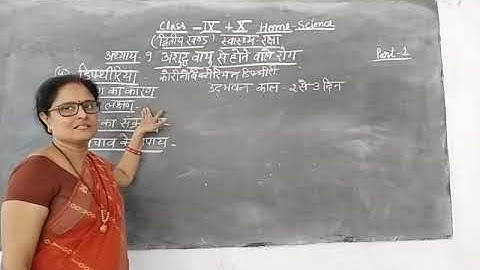 Class - IX + X Home-Science
(द्वितीय खण्ड) स्वास्थ्य-रक्षा
अध्याय-9 अशुद्ध वायु से होने वाले रोग
Part-2
डिफ्थीरिया -
का कारण
उद्भवन काल - 2 से 3 दिन
लक्षण
बचाव के उपाय -